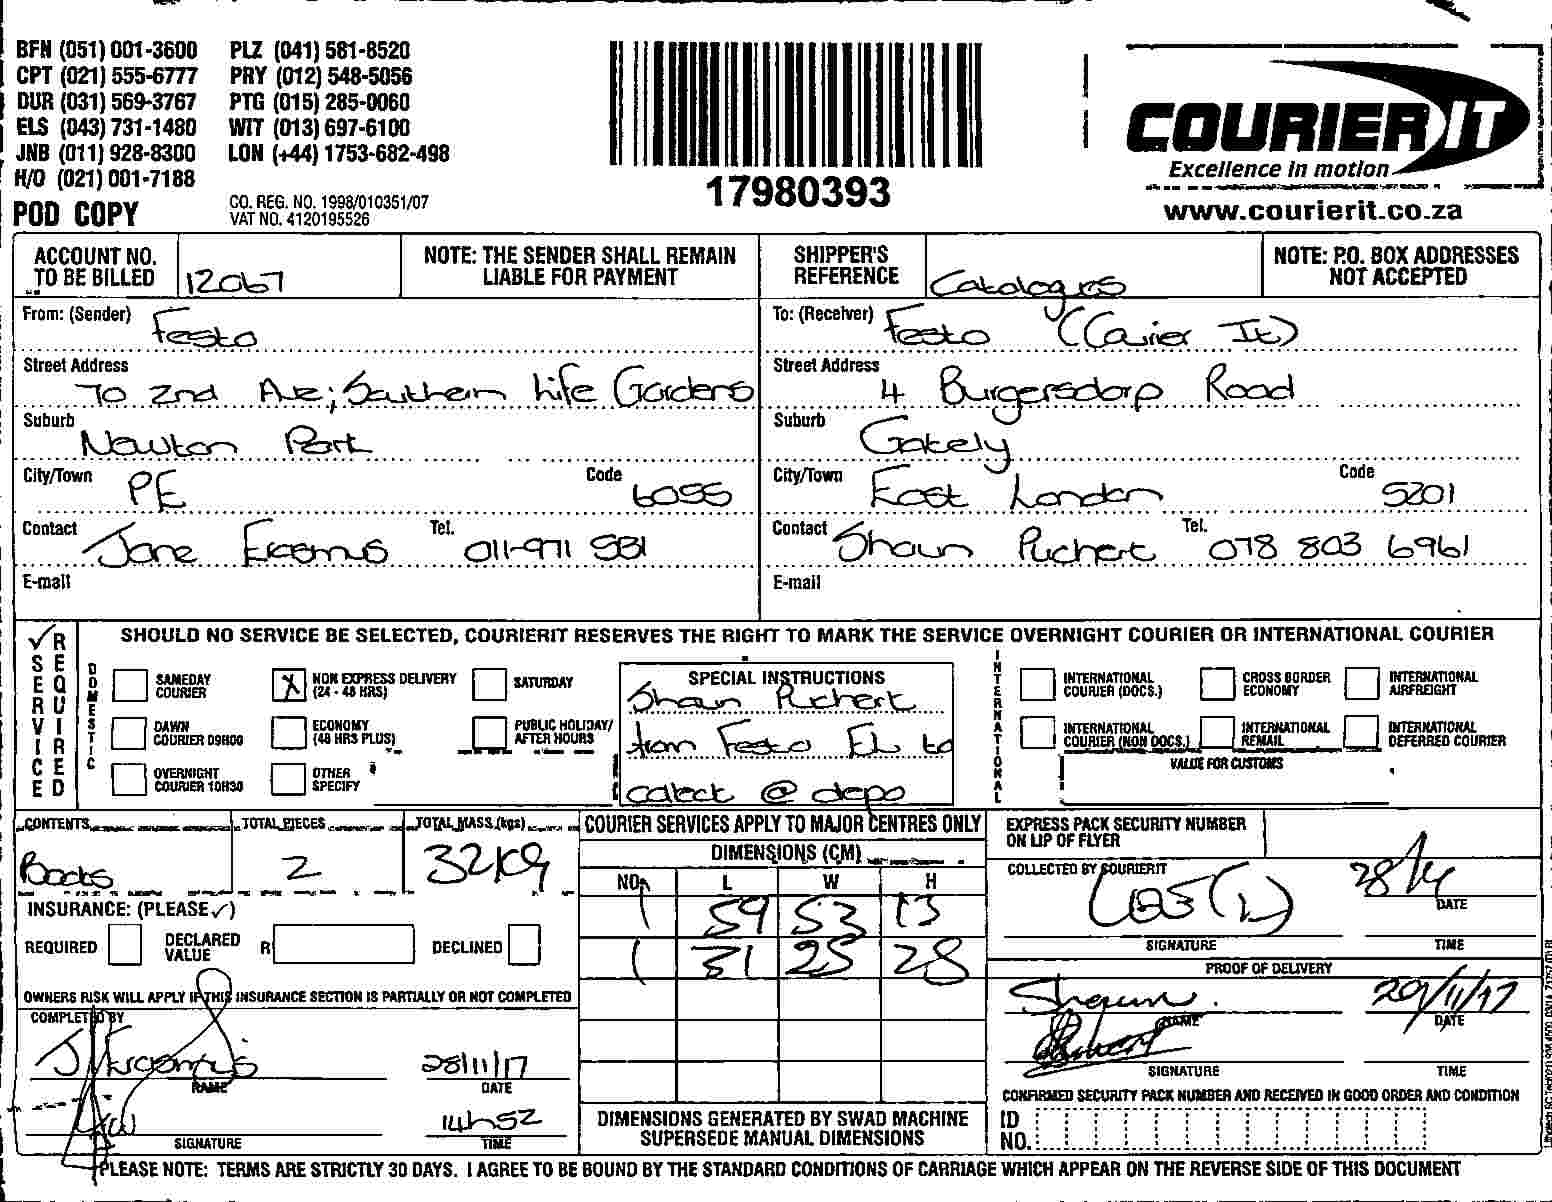 BFN (051) 001-3600 PLZ (041) 581-8520
CPT (021) 555-6777 PRY (012) 548-5056
DUR (031) 569-3767 PTG (015) 285-0060
ELS (043) 731-1480 WIT (013) 697-6100
JNB (011) 928-8300 LON (+44) 1753-682-498
H/O (021) 001-7188
POD COPY
CO. REG. NO. 1998/010351/07
VAT NO. 4120195526
17980393
COURIER IT
Excellence in motion
www.courierit.co.za
ACCOUNT NO. TO BE BILLED 12067
NOTE: THE SENDER SHALL REMAIN LIABLE FOR PAYMENT
SHIPPER'S REFERENCE Catalogues
NOTE: P.O. BOX ADDRESSES NOT ACCEPTED
From: (Sender) Festo
Street Address 70 2nd Ave; Southern Life Gardens
Suburb Newton Park
City/Town PE Code 6055
Contact Jane Erasmus Tel. 011-971 551
E-mail
To: (Receiver) Festo (Courier It)
Street Address 4 Burgersdorp Road
Suburb Gately
City/Town East London Code 5201
Contact Shaun Puchert Tel. 078 803 6961
E-mail
✓ SERVICE REQUIRED
SHOULD NO SERVICE BE SELECTED, COURIERIT RESERVES THE RIGHT TO MARK THE SERVICE OVERNIGHT COURIER OR INTERNATIONAL COURIER
DOMESTIC
SAMEDAY COURIER
X NON EXPRESS DELIVERY (24 - 48 HRS)
SATURDAY
DAWN COURIER 09H00
ECONOMY (48 HRS PLUS)
PUBLIC HOLIDAY/ AFTER HOURS
OVERNIGHT COURIER 10H30
OTHER SPECIFY
SPECIAL INSTRUCTIONS
Shaun Puchert
from Festo EL to
collect @ depo
INTERNATIONAL
INTERNATIONAL COURIER (DOCS.)
CROSS BORDER ECONOMY
INTERNATIONAL AIRFREIGHT
INTERNATIONAL COURIER (NON DOCS.)
INTERNATIONAL REMAIL
INTERNATIONAL DEFERRED COURIER
VALUE FOR CUSTOMS
CONTENTS Books
TOTAL PIECES 2
TOTAL MASS (kgs) 32kg
INSURANCE: (PLEASE ✓)
REQUIRED DECLARED VALUE R DECLINED
OWNERS RISK WILL APPLY IF THIS INSURANCE SECTION IS PARTIALLY OR NOT COMPLETED
COMPLETED BY
J Erasmus 28/11/17
NAME DATE
14h52
SIGNATURE TIME
COURIER SERVICES APPLY TO MAJOR CENTRES ONLY
DIMENSIONS (CM)
NO. L W H
1 59 53 13
1 31 25 28
DIMENSIONS GENERATED BY SWAD MACHINE SUPERSEDE MANUAL DIMENSIONS
EXPRESS PACK SECURITY NUMBER ON LIP OF FLYER
COLLECTED BY COURIERIT
DATE
SIGNATURE TIME
PROOF OF DELIVERY
Shaun 29/11/17
NAME DATE
SIGNATURE TIME
CONFIRMED SECURITY PACK NUMBER AND RECEIVED IN GOOD ORDER AND CONDITION
ID NO.
PLEASE NOTE: TERMS ARE STRICTLY 30 DAYS. I AGREE TO BE BOUND BY THE STANDARD CONDITIONS OF CARRIAGE WHICH APPEAR ON THE REVERSE SIDE OF THIS DOCUMENT